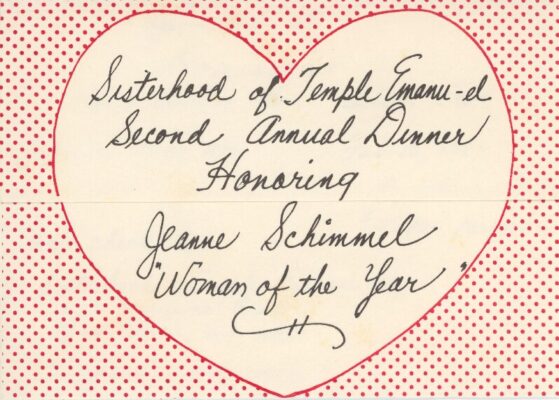 Sisterhood of Temple Emanu-el
Second Annual Dinner
Honoring
Jeanne Schimmel
"Woman of the Year"